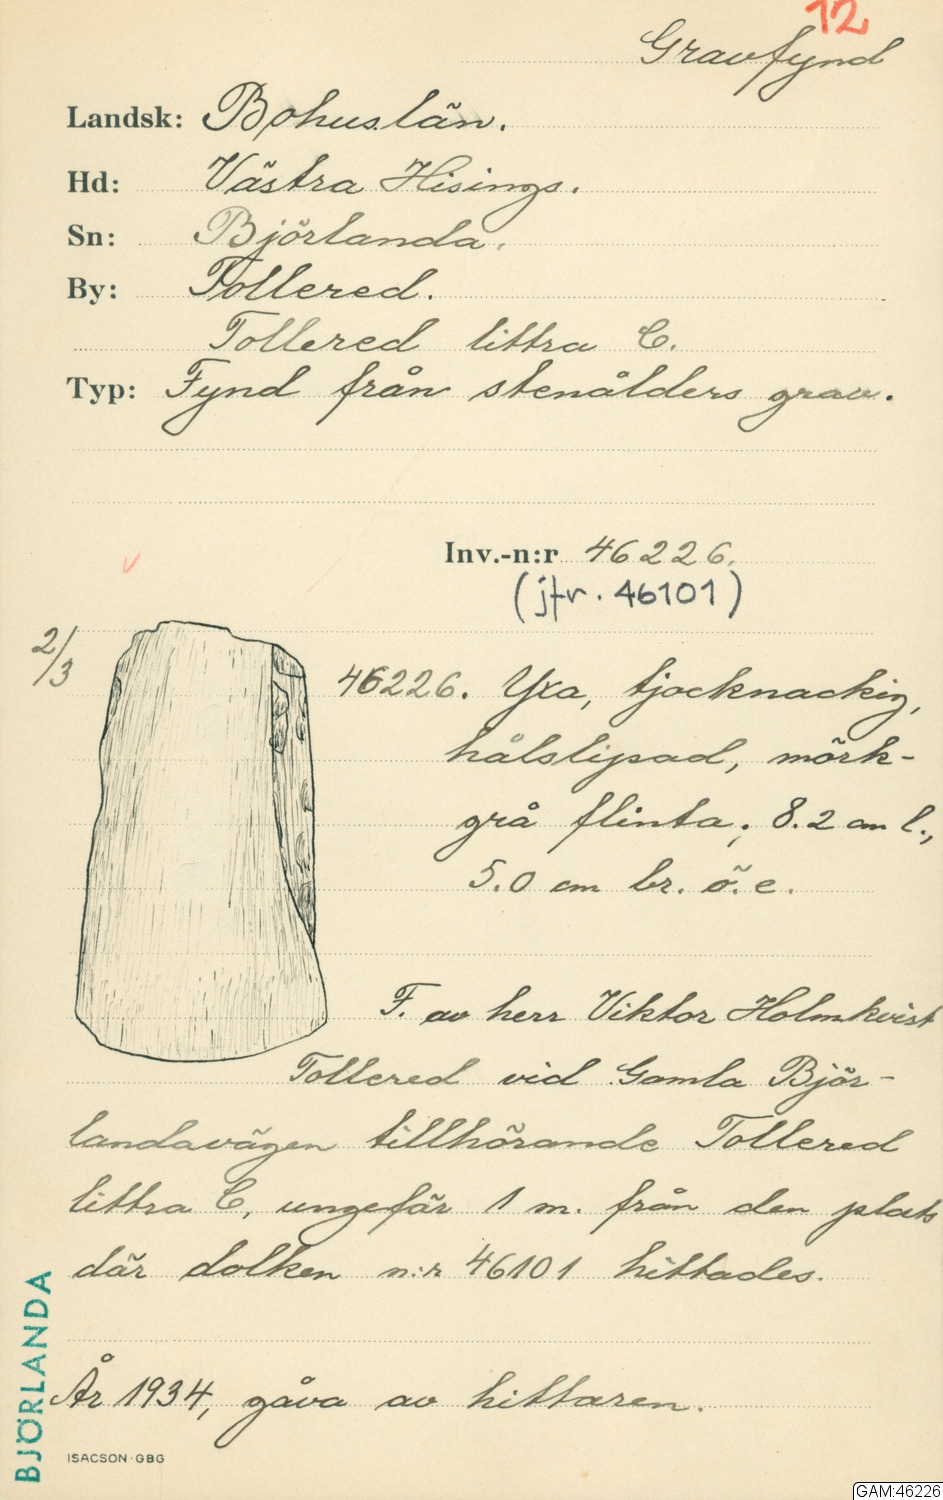 12
Gravfynd
Landsk: Bohuslän.
Hd: Västra Hisings.
Sn: Björlanda.
By: Tollered.
Tollered littra C.
Typ: Fynd från stenålders grav.
Inv.-n:r 46226.
(jfr. 46101)
2/3
46226. Yxa, tjocknackig,
hålslipad, mörk-
grå flinta; 8.2 cm l.,
5.0 cm br. ö. e.
F. av herr Viktor Holmkvist
Tollered vid Gamla Björ-
landavägen tillhörande Tollered
littra C, ungefär 1 m. från den plats
där dolken n:r 46101 hittades.
År 1934, gåva av hittaren.
BJÖRLANDA
ISACSON·GBG
GAM:46226